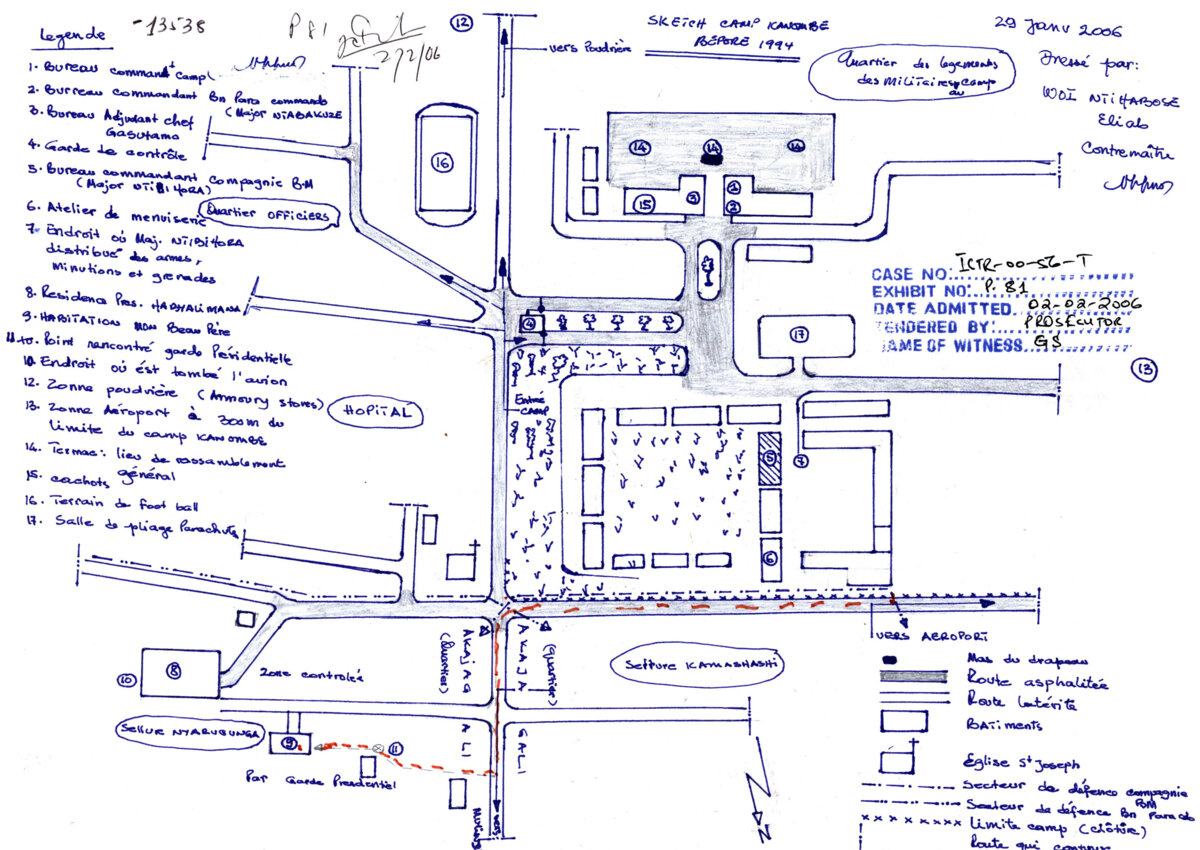 Legende
-13538
P 81
2/2/06
12
vers Poudrière
SKETCH CAMP KANOMBE
BEFORE 1994
29 Janv 2006
Dressé par:
WOI NTIHABOSE
Eliab
Contremaître
Quartier des logements
des militaires camp
au
1. Bureau commandt camp
2. Burreau commandant Bn Para commando
(Major NTABAKUZE
3. Bureau Adjudant chef
Gasutamo
4. Garde de contrôle
5. Bureau commandant Compagnie B.M
(Major NTIBIHORA)
6. Atelier de menuiserie
7. Endroit où Maj. NTIBIHORA
distribué des armes,
minutions et grenades
8. Residence Pres. HABYALIMANA
9. HABITATION MON Beau Père
11. Point rencontré garde Présidentielle
10. Endroit où est tombé l'avion
12. Zonne poudrière (Armoury stores)
13. Zonne Aéroport à 300m du
limite du camp KANOMBE
14. Termac: lieu de rassamblement
général
15. cachots
16. Terrain de Foot ball
17. Salle de pliage Parachute
Quartier OFFICIERS
HOPITAL
16
14
14
14
15
3
1
2
4
17
13
Entrée
CAMP
5
7
6
CASE NO: ICTR-00-56-T
EXHIBIT NO: P. 81
DATE ADMITTED. 02-02-2006
TENDERED BY: PROSECUTOR
NAME OF WITNESS. GS
VERS AEROPORT
AKAJAG
ALI
(Quartier)
AKAJA
GALI
(Quartier)
Secteur KAMASHASHI
Zone controlée
8
10
Secteur NYARUGUNGA
9
11
Par Garde Presidentiel
vers
Mas du drapeau
Route asphaltée
Route latérité
BATIMENTS
Eglise St Joseph
Secteur de défence compagnie
BM
Secteur de défence Bn Para cdo
Limite camp (clôture)
Route qui continue